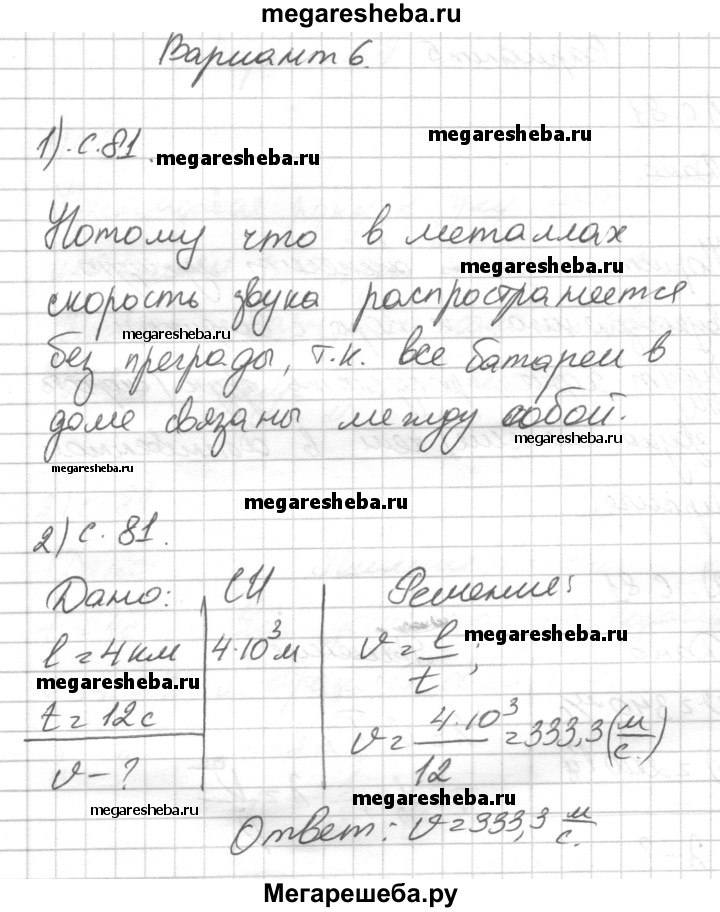 megaresheba.ru
Вариант 6.
1). с. 81.
megaresheba.ru
megaresheba.ru
Потому что в металлах
megaresheba.ru
скорость звука распространяется
megaresheba.ru
без преграды, т.к. все батареи в
доме связаны между собой.
megaresheba.ru
megaresheba.ru
megaresheba.ru
2) с. 81.
Дано: СИ Решение:
l = 4 км 4·10³ м v = l/t;
megaresheba.ru
megaresheba.ru
t = 12 с
v = 4·10³/12 = 333,3 (м/с.)
v - ?
megaresheba.ru
megaresheba.ru
Ответ: v = 333,3 м/с.
Мегарешеба.ру